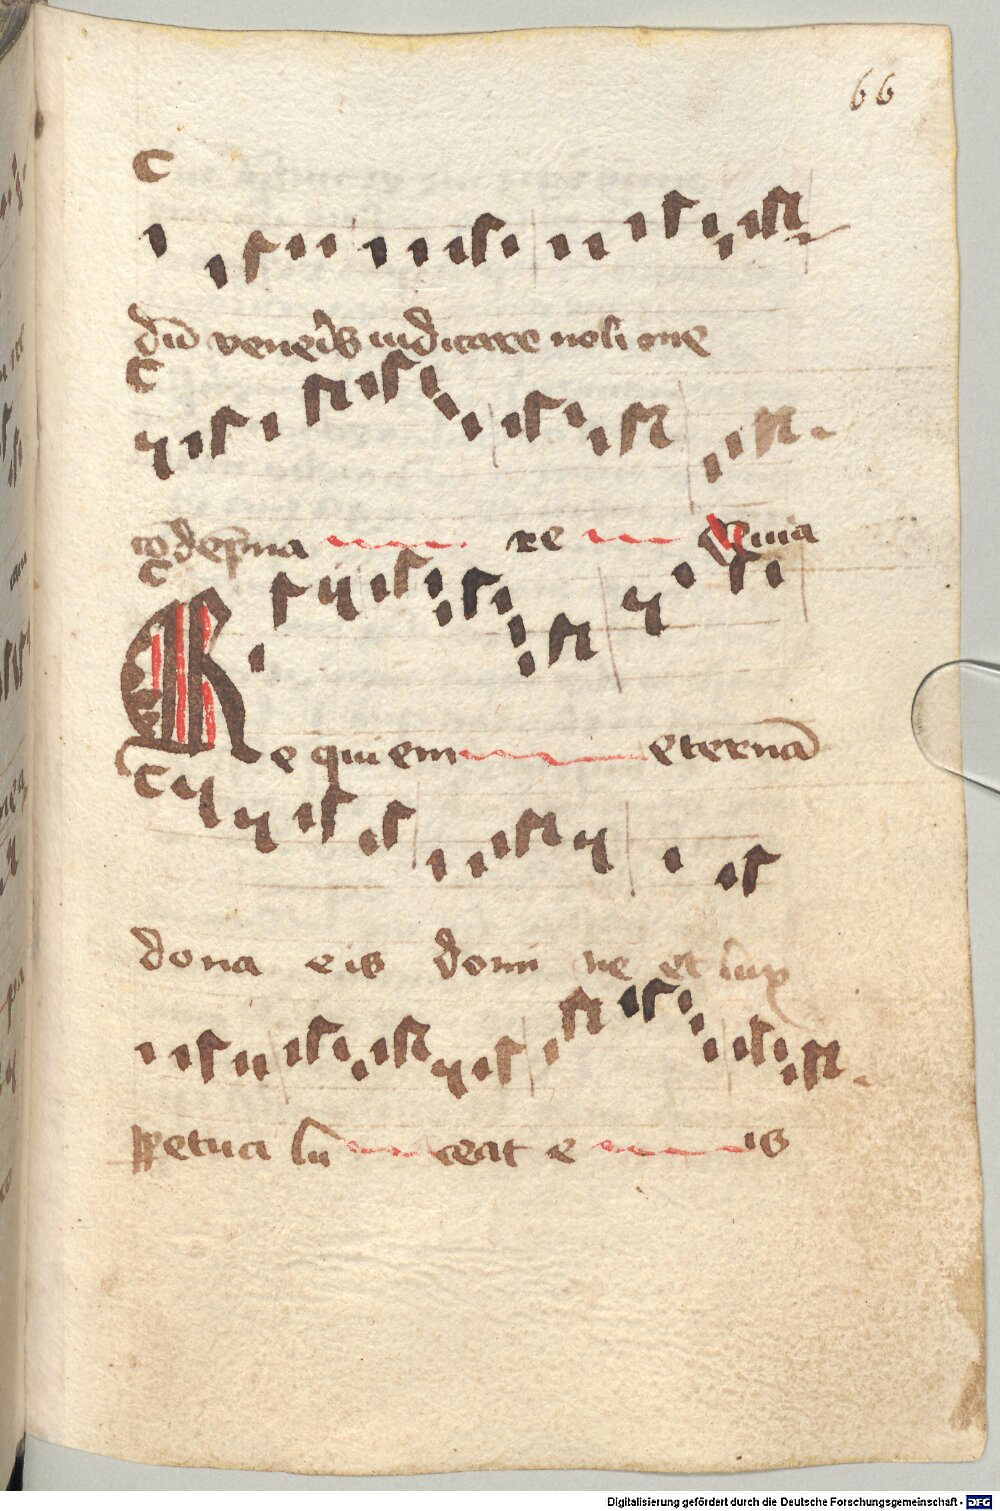 66
dū veneris iudicare noli me
cōdēpna re Quia
Requiem eternā
dona eis domi ne et lux
ꝑpetua lu ceat e is
Digitalisierung gefördert durch die Deutsche Forschungsgemeinschaft - DFG